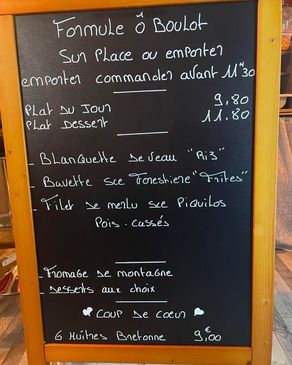 Formule Ô Boulot
Sur Place ou emporter
emporter commander avant 11h30
Plat du Jour 9,80
Plat Dessert 11.80
- Blanquette de veau "Riz"
- Bavette sce Forestiere "Frites"
- Filet de merlu sce Piquillos
Pois-cassés
- Fromage de montagne
- Desserts aux choix
Coup de coeur
6 Huîtres Bretonne 9,€00